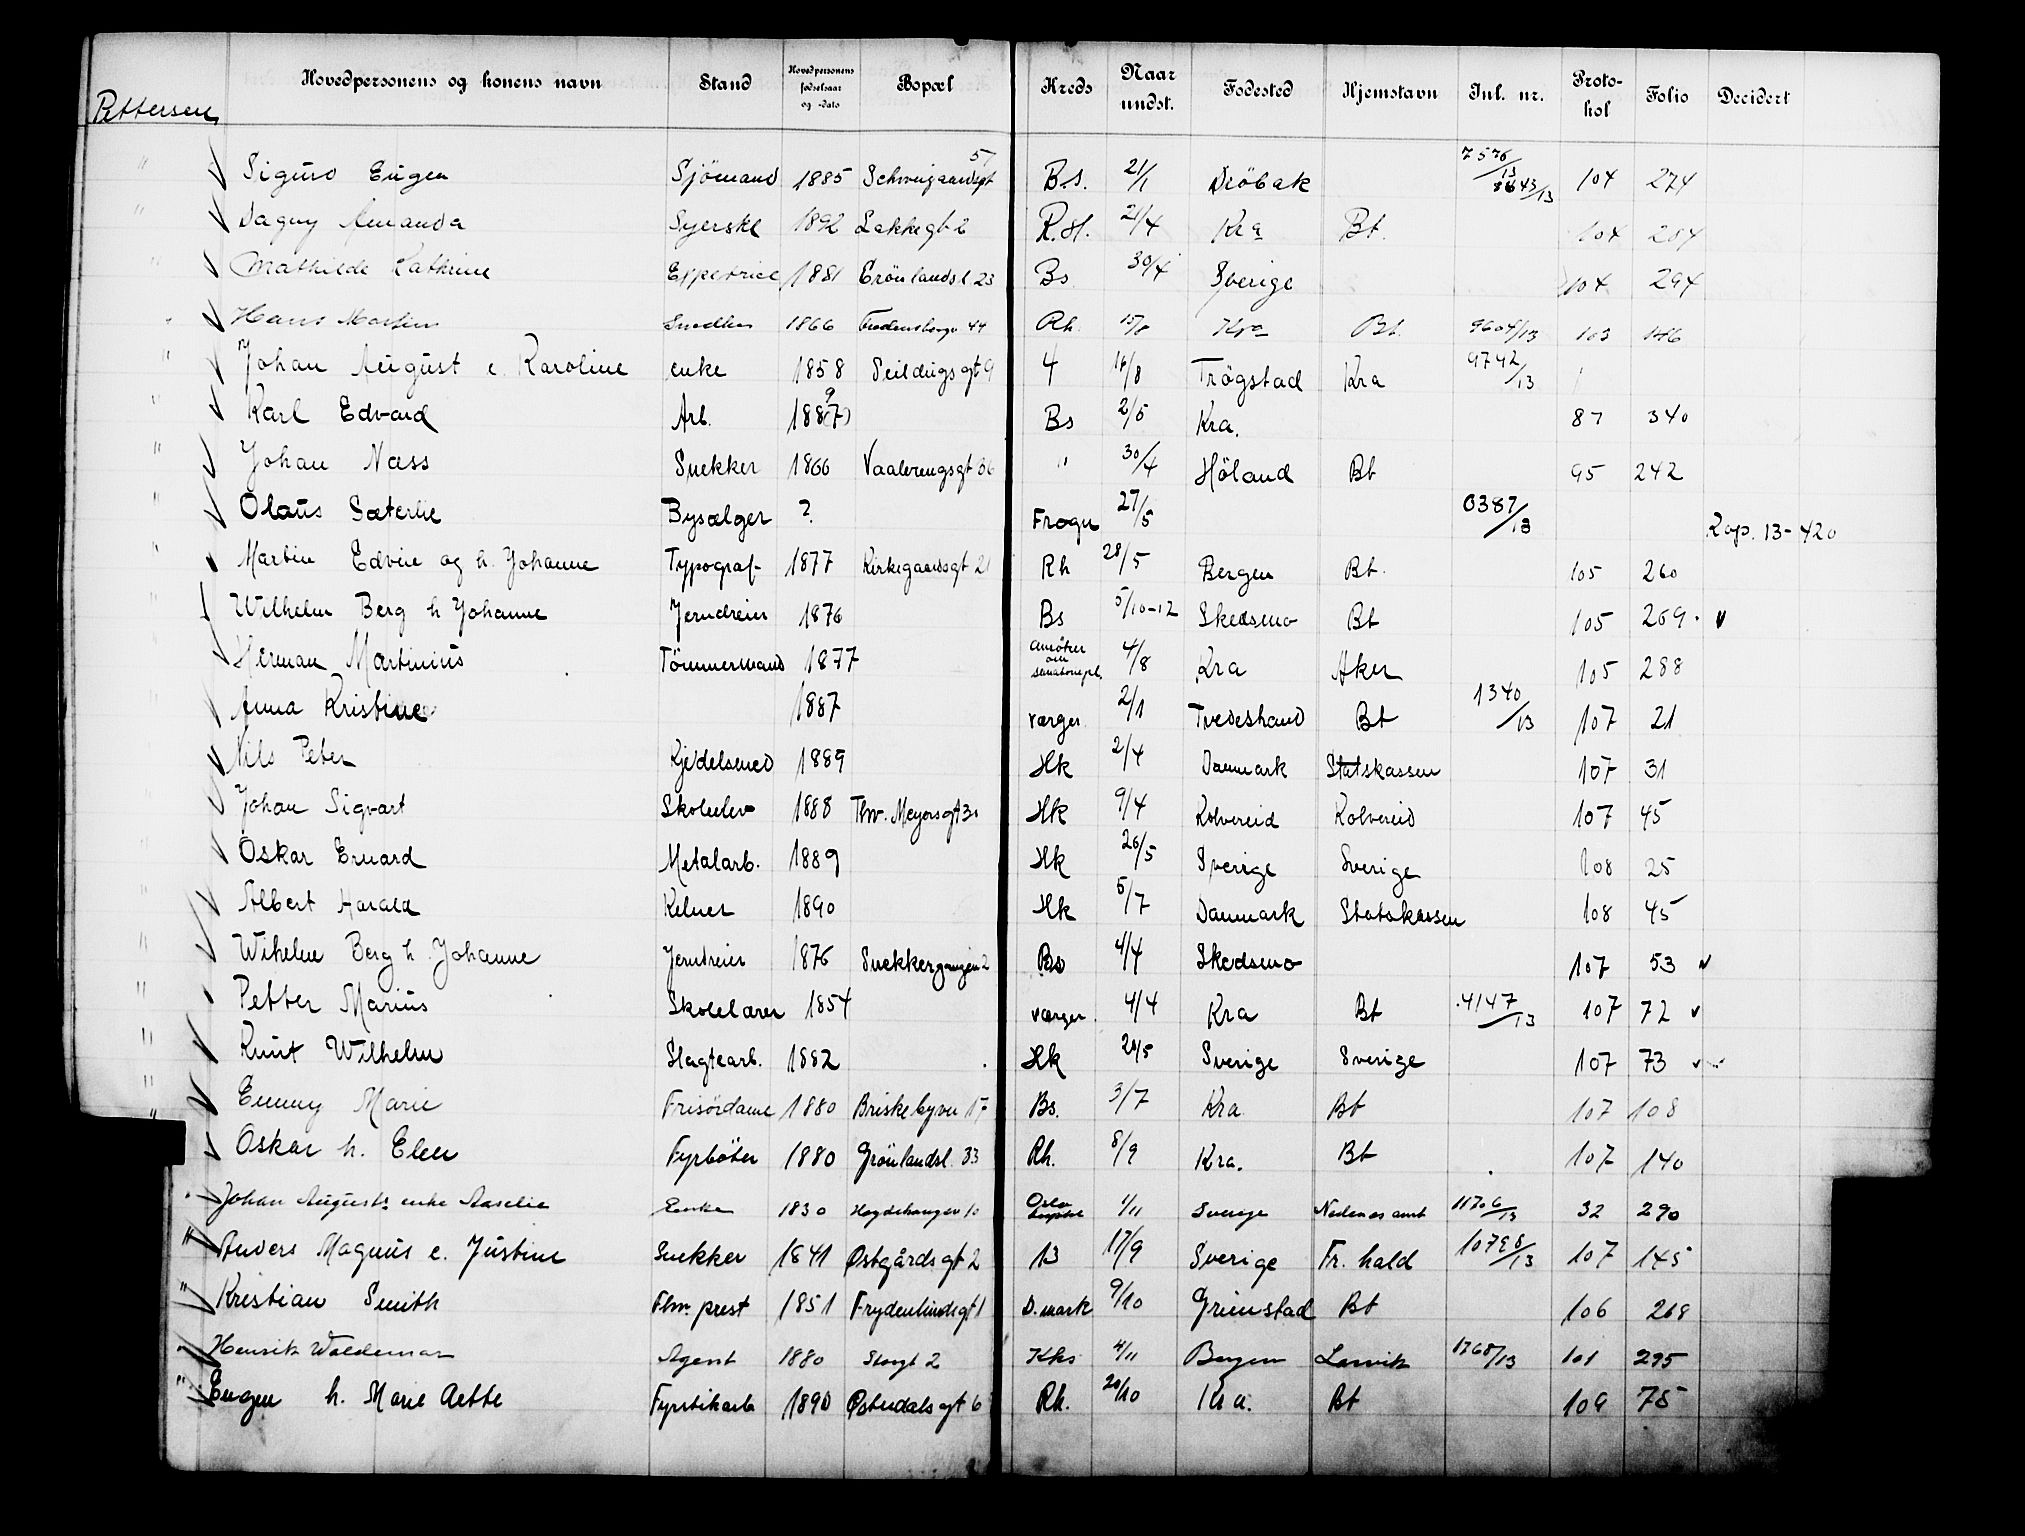 Hovedpersonens og konens navn Stand Hovedpersonens fødselsaar og -dato Bopæl Kreds Naar undst. Fødested Hjemstavn Inl. nr. Proto-kol Folio Decidert
Pettersen
" Sigurd Eugen Sjömand 1885 Schweigaardsgt 57 B.s. 21/1 Dröbak 7576/13 8643/13 104 274
" Dagny Amanda Syerske 1892 Lakkegt 2 R.H. 21/4 Kra Bt. 104 284
" Mathilde Kathrine Expetrice 1881 Grönlandsl 23 Bs 30/4 Sverige 104 294
" Hans Martin Snedker 1866 Fredensborgv 44 Rh. 15/8 Kra Bt. 9604/13 103 186
" Johan August e. Karoline enke 1858 Seildugsgt 9 4 14/8 Trögstad Kra 9742/13
" Karl Edvard Arb. 1887 (9) Bs 2/5 Kra. 87 340
" Johan Næss Snekker 1866 Vaalerengsgt 36 " 30/4 Höland Bt 95 242
" Olaus Sæterlie Bysælger ? Frogn 27/5 0387/13 Rap. 13-420
" Martin Edvin og h. Johanne Typograf 1877 Kirkegaardsgt 21 Rh 28/5 Bergen Bt. 105 260
" Wilhelm Berg h Johanne Jerndreier 1876 Bs 5/10-12 Skedsmo Bt 105 269
" Herman Martinius Tömmermand 1877 ansöker om 4/8 Kra Aker 105 288
" Anna Kristine 1887 værger 2/1 Tvedestrand Bt 1340/13 107 21
" Nils Peter Kjedelsmed 1889 Hk 2/4 Danmark Statskassen 107 31
" Johan Sigvart Skoleelev 1888 Thv. Meyersgt 30 Hk 9/4 Kolvereid Kolvereid 107 45
" Oskar Ernard Metalarb. 1889 Hk 26/5 Sverige Sverige 108 25
" Albert Harald Kelner 1890 Hk 5/7 Danmark Statskassen 108 45
" Wihelm Berg h. Johanne Jerndreier 1876 Snekkergangen 2 Bs 4/4 Skedsmo 107 53
" Petter Marius Skolelærer 1854 værger 4/4 Kra Bt 4147/13 107 72
" Knut Wilhelm Slagtearb. 1882 Hk 20/5 Sverige Sverige 107 73
" Emmy Marie Frisördame 1880 Briskebyvn 17 Bs. 3/7 Kra Bt 107 108
" Oskar h. Elen Fyrböter 1880 Grönlandsl. 33 Rh. 8/9 Kra. Bt 107 140
Johan Augusts enke Aaselie Enke 1830 Høgdehangen 10 Oslo 1/11 Sverige Nedenes amt 11706/13 32 290
" Anders Magnus e. Justine Snekker 1841 Østgårdsgt 2 13 17/9 Sverige Fr. hald 10798/13 107 145
" Kristian Smith Fhv. prest 1851 Frydenlundsgt 1 D.mark 9/10 Grimstad Bt 106 268
" Henrik Waldemar Agent 1880 Storgt 2 Kks 4/11 Bergen Larvik 1768/13 101 295
" Eugen h. Marie Aette Fyrstikarb 1890 Østerdalsgt 6 Rh. 20/10 Kra. Bt 109 75